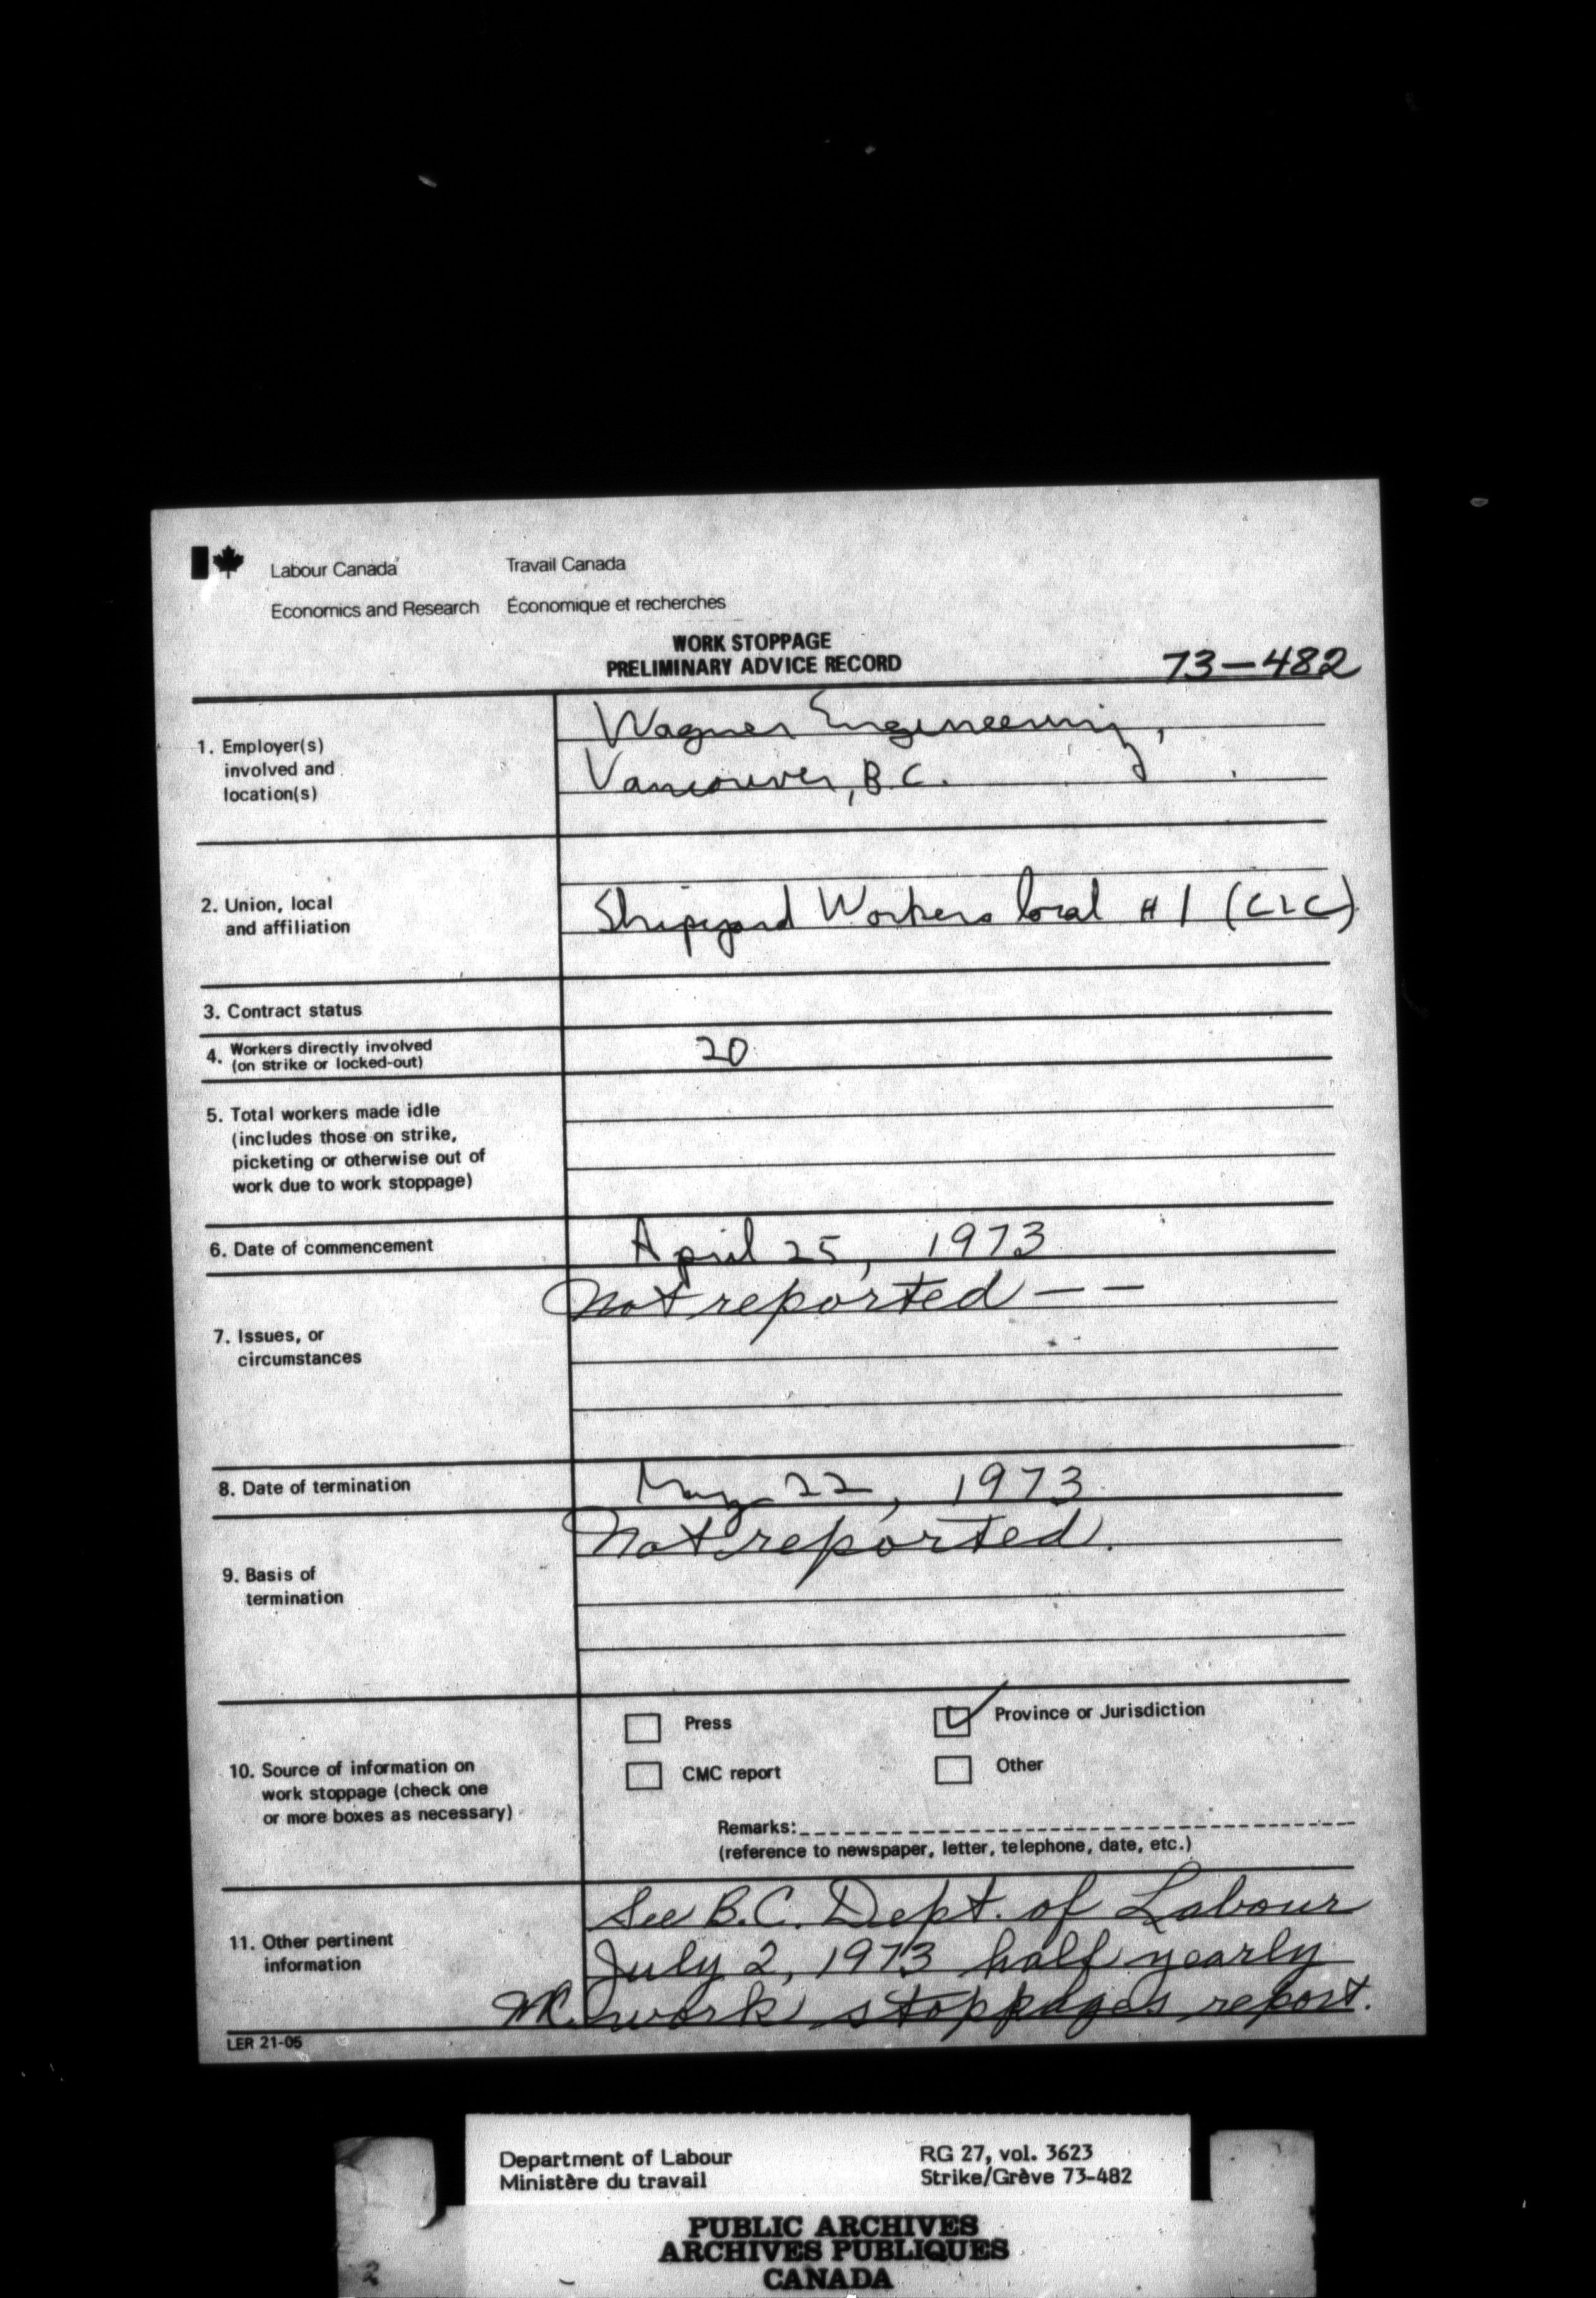 Labour Canada Travail Canada
Economics and Research Économique et recherches
WORK STOPPAGE
PRELIMINARY ADVICE RECORD
73-482
1. Employer(s)
involved and
location(s)
Wagner Engineering,
Vancouver, B.C.
2. Union, local
and affiliation
Shipyard Workers local #1 (CLC)
3. Contract status
4. Workers directly involved
(on strike or locked-out)
20
5. Total workers made idle
(includes those on strike,
picketing or otherwise out of
work due to work stoppage)
6. Date of commencement
April 25, 1973
7. Issues, or
circumstances
Not reported — —
8. Date of termination
May 22, 1973
9. Basis of
termination
Not reported.
10. Source of information on
work stoppage (check one
or more boxes as necessary)
Press
Province or Jurisdiction
CMC report
Other
Remarks:
(reference to newspaper, letter, telephone, date, etc.)
11. Other pertinent
information
See B.C. Dept. of Labour
July 2, 1973 half yearly
work stoppages report.
LER 21-05
Department of Labour RG 27, vol. 3623
Ministère du travail Strike/Grève 73-482
PUBLIC ARCHIVES
ARCHIVES PUBLIQUES
CANADA
2